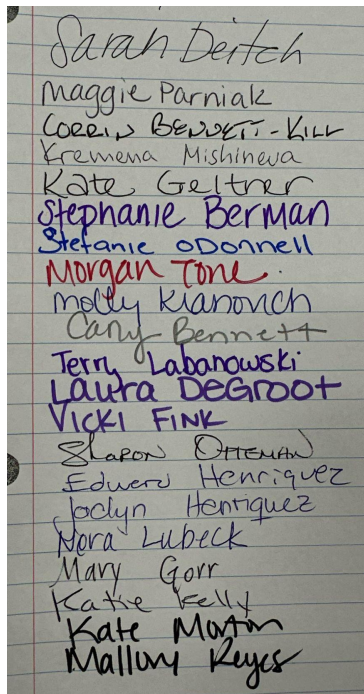 Sarah Deitch
Maggie Parniak
CORRIN BENNETT-KILL
Kremena Mishineva
Kate Geltner
Stephanie Berman
Stefanie ODonnell
Morgan Tone
Molly Kianovich
Cary Bennett
Terry Labanowski
Laura DeGroot
VICKI FINK
SHARON OTTEMAN
Edward Henriquez
Joclyn Henriquez
Nora Lubeck
Mary Gorr
Katie Kelly
Kate Morton
Mallory Reyes